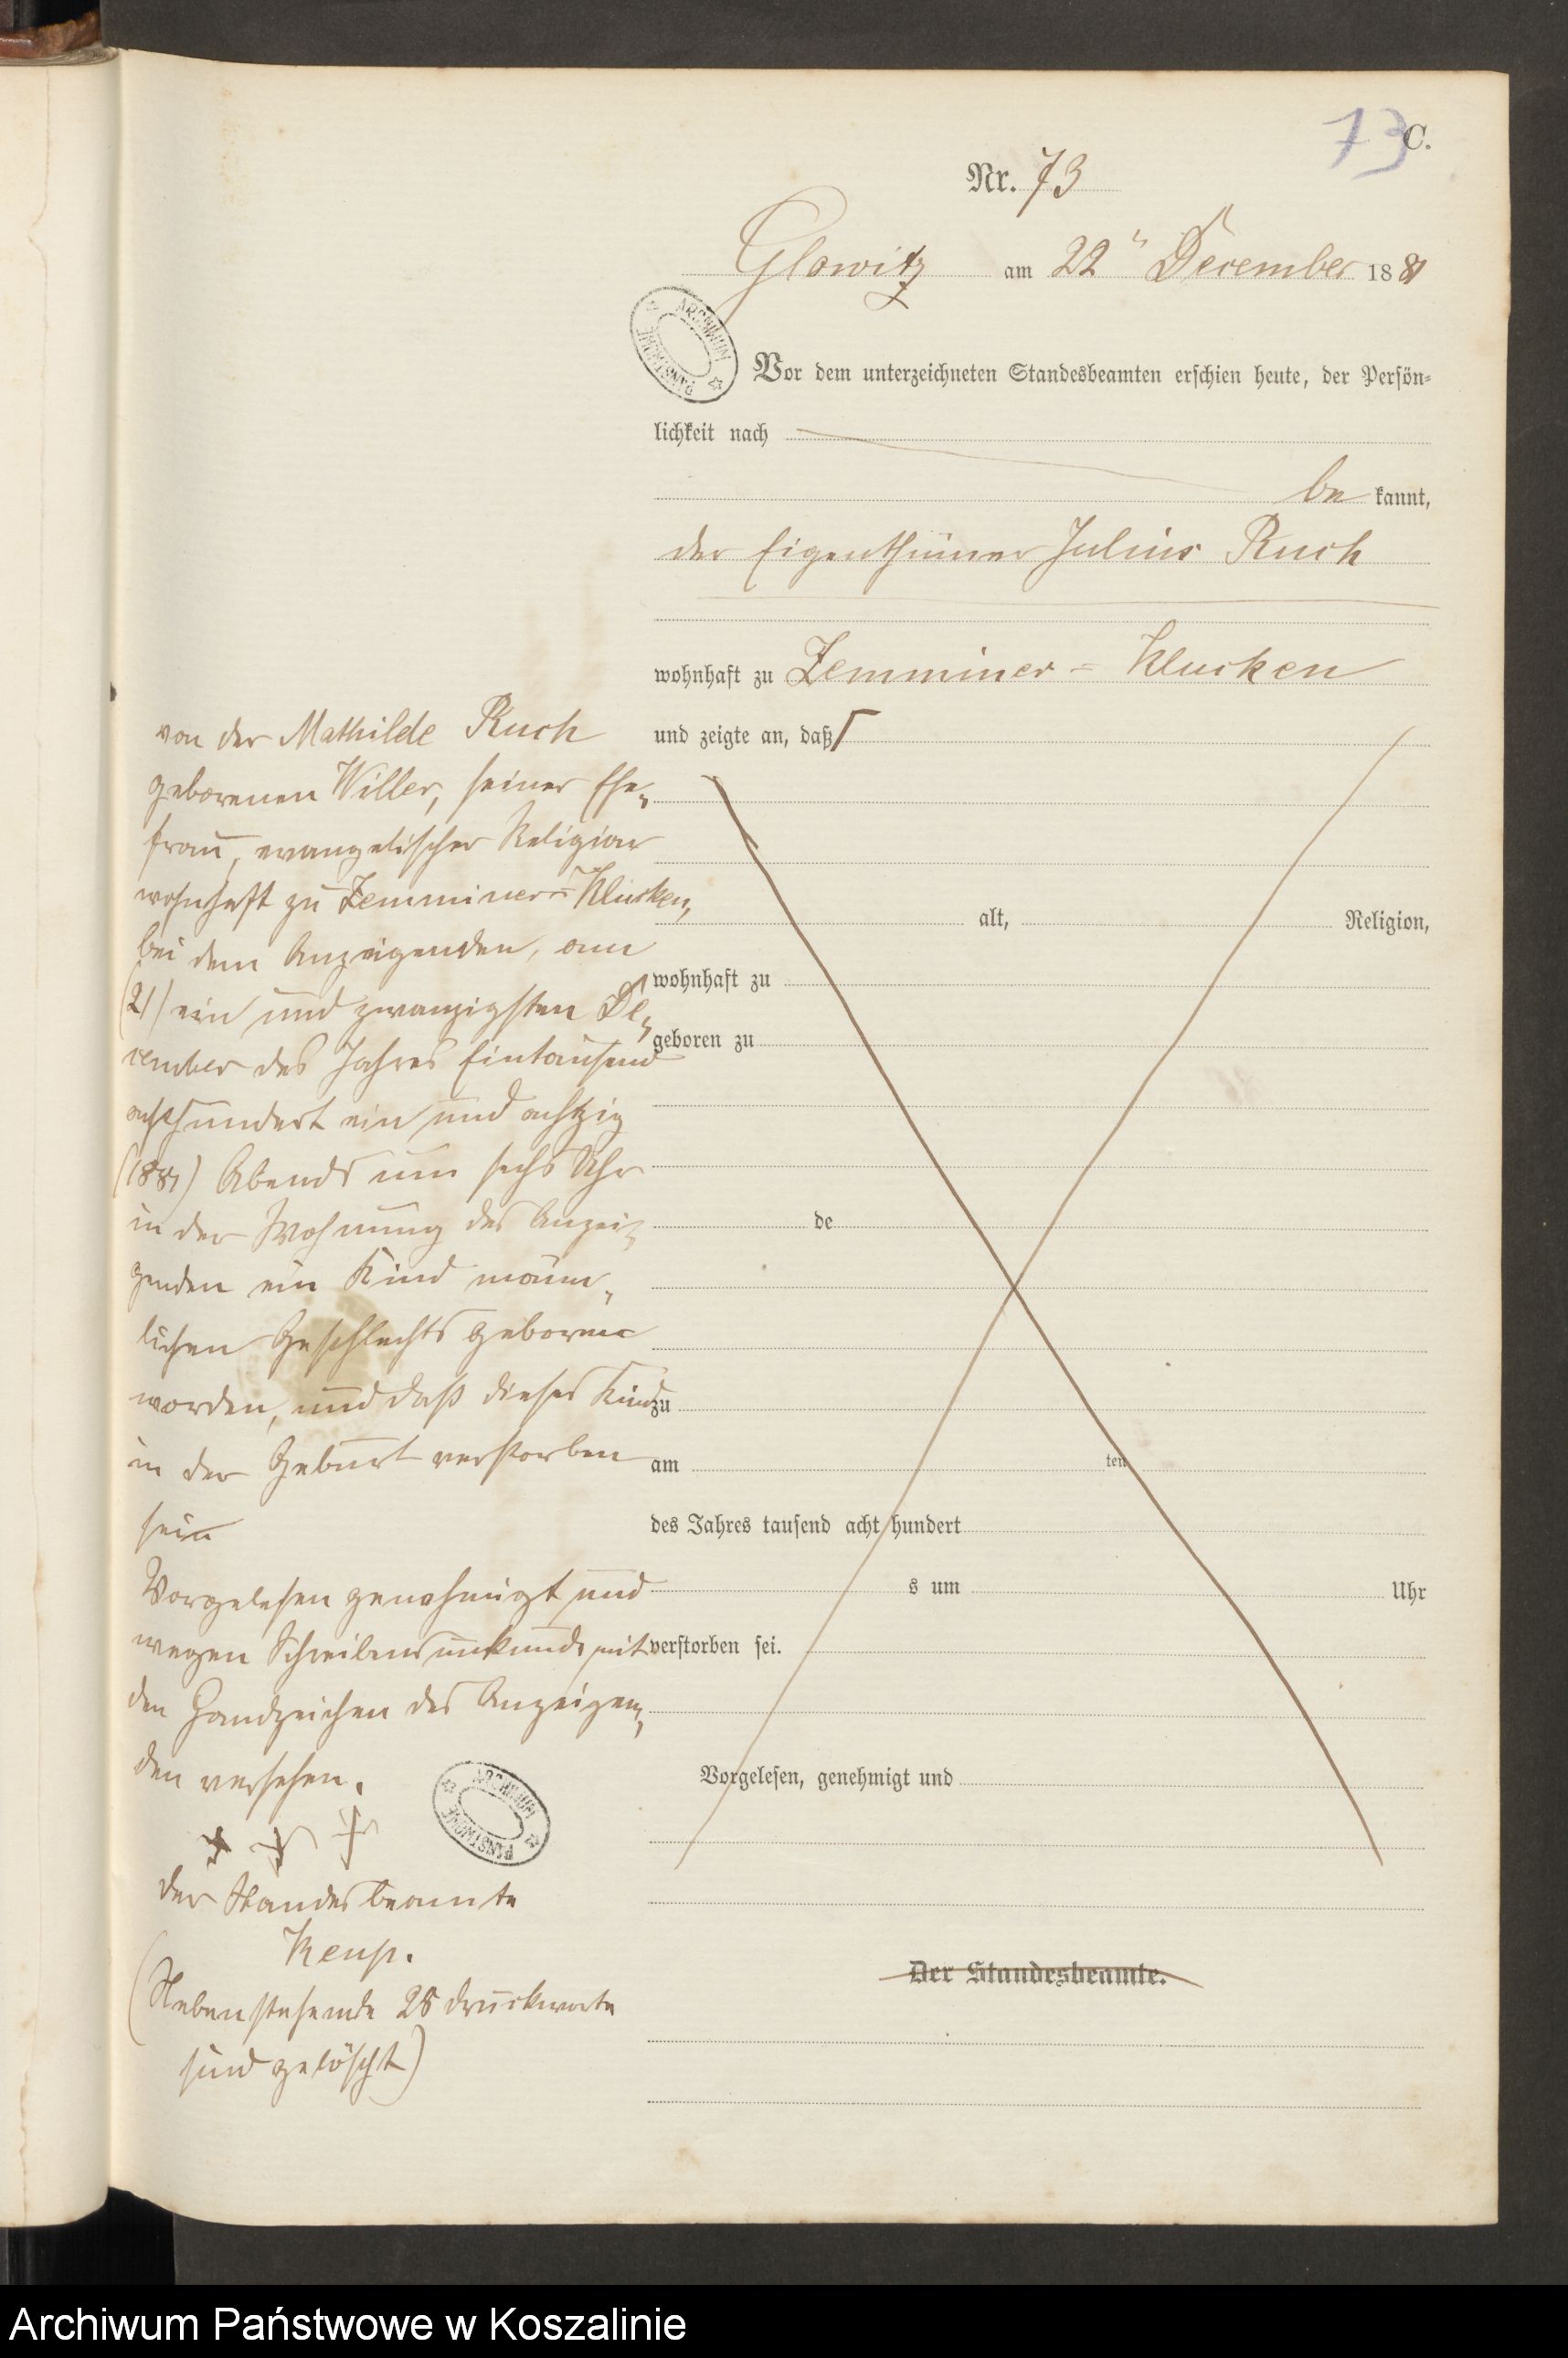 73
C.
Nr. 73
Glowitz am 22" December 1881
ARCHIWUM PAŃSTWOWE
Vor dem unterzeichneten Standesbeamten erschien heute, der Persön=
lichkeit nach
be kannt,
der Eigenthümer Julius Ruch
wohnhaft zu Zemminer = Klucken
und zeigte an, daß
alt, Religion,
wohnhaft zu
geboren zu
de
zu
am ten
des Jahres tausend acht hundert
s um Uhr
verstorben sei.
Vorgelesen, genehmigt und
Der Standesbeamte.
von der Mathilde Ruch
geborenen Willer, seiner Ehe„
frau, evangelischer Religion
wohnhaft zu Zemminer=Klucken,
bei dem Anzeigenden, am
(21) ein und zwanzigsten De„
cember des Jahres Eintausend
achthundert ein und achtzig
(1881) Abends um sechs Uhr
in der Wohnung des Anzei„
genden ein Kind männ„
lichen Geschlechts geboren
worden, und daß dieses Kind
in der Geburt verstorben
sei
Vorgelesen genehmigt und
wegen Schreibensunkunde mit
den Handzeichen des Anzeigen„
den versehen.
+ + +
ARCHIWUM PAŃSTWOWE
der Standesbeamte
(Nebenstehende 28 Druckworte
sind gelöscht)
Archiwum Państwowe w Koszalinie